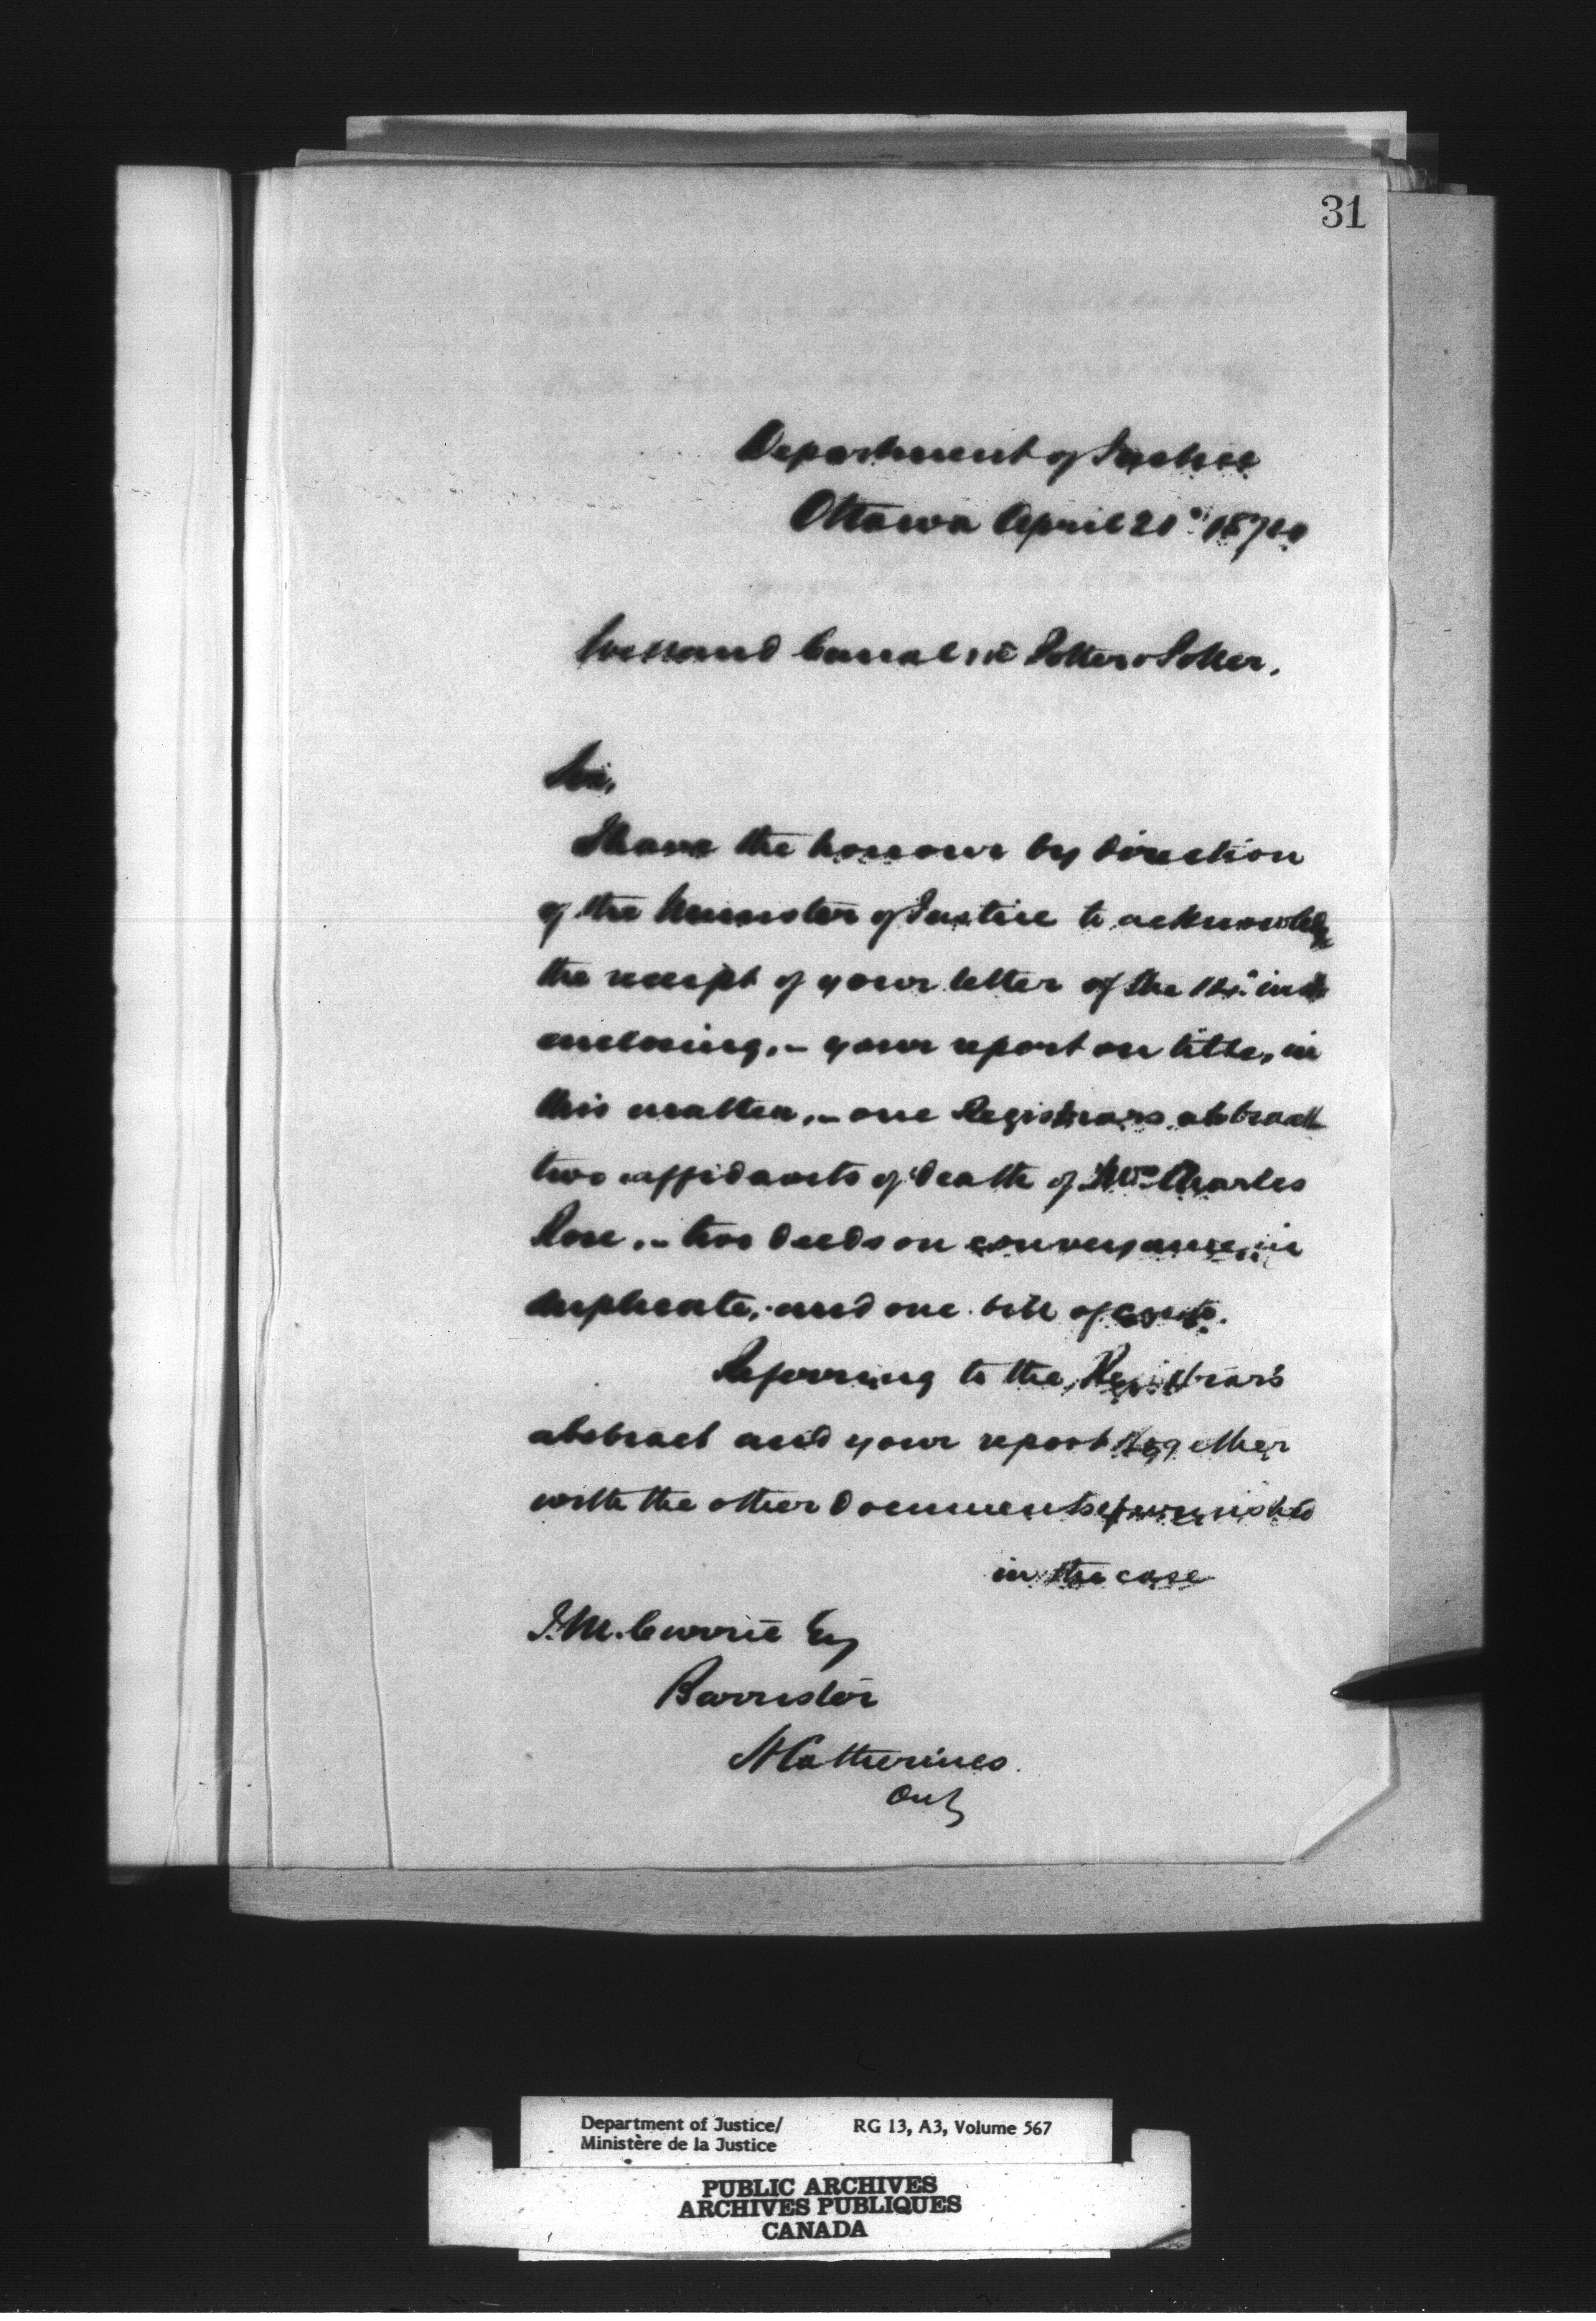 31
Department of Justice
Ottawa April 21st 1874
Welland Canal re Potter & Potter.
Sir,
I have the honour by direction
of the Minister of Justice to acknowledge
the receipt of your letter of the inst
enclosing,– your report on title, in
this matter,– one Registrars abstract
two affidavits of death of Charles
Rose,– two deeds on conveyance, in
duplicate, and one bill of costs.
Referring to the Registrar's
abstract and your report together
with the other documents furnished
in the case
J. M. Currie Esq
Barrister
St Catherines.
Ont
Department of Justice/
Ministère de la Justice
RG 13, A3, Volume 567
PUBLIC ARCHIVES
ARCHIVES PUBLIQUES
CANADA